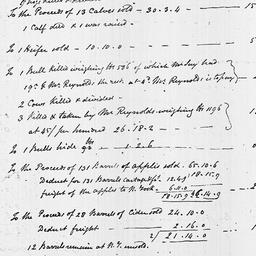 To the Proceeds of 13 Calves sold - 30.3.4 -
1 Calf died & 1 was raised -
To 1 Heifer sold - 10.10.0 -
To 1 Bull Killed weighing 536 of which Mr Jay had
19 & Mr Reynolds the rest at 4. Mr Reynolds is to pay
2 Cows Killed & divided -
3 Killed & taken by Mr Reynolds weighing 1196
at 45/ per hundred 26.18.2 -
To 1 Bulls hide 1.2.6
To the Proceeds of 131 Barrels of apples sold - 65.10.6
Deduct for 131 Barrels 12.4.9 18.15.9
freight of the apples to N. York - 6.11.0
18.15.9
To the Proceeds of 28 Barrels of Cider sold 24.10.0
Deduct freight - 2.16.0
2/ 21.14.0
12 Barrels remain at N. Y. unsold.